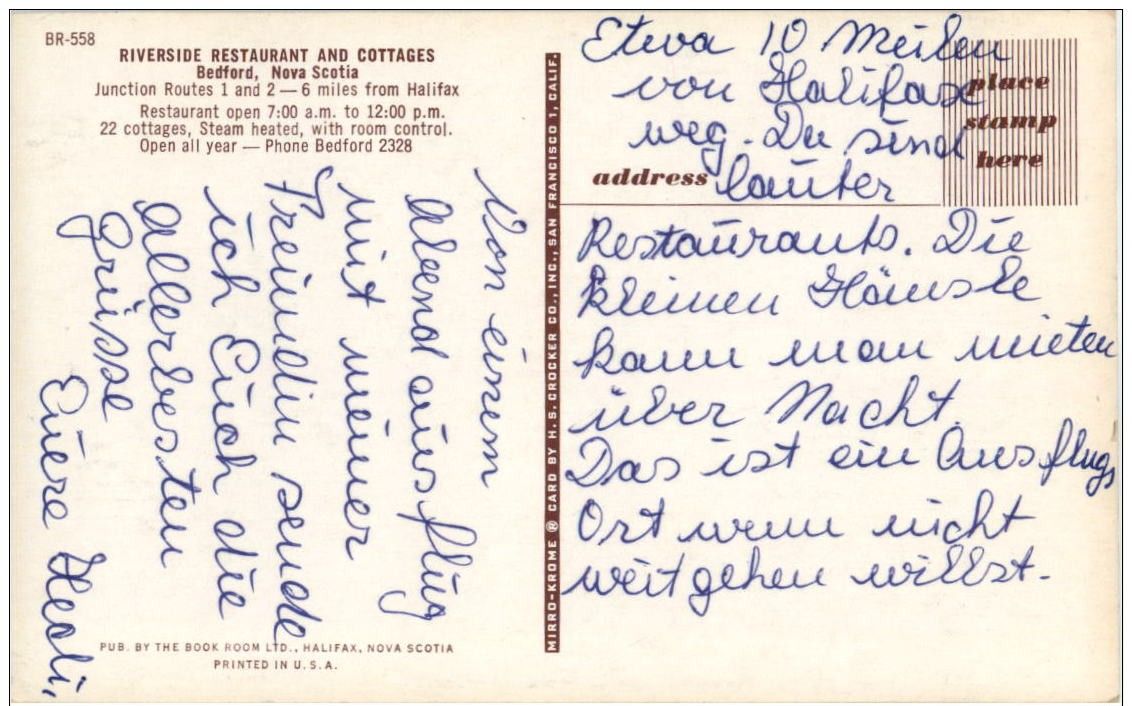 BR-558
RIVERSIDE RESTAURANT AND COTTAGES
Bedford, Nova Scotia
Junction Routes 1 and 2 — 6 miles from Halifax
Restaurant open 7:00 a.m. to 12:00 p.m.
22 cottages, Steam heated, with room control.
Open all year — Phone Bedford 2328
Von einem
Abendausflug
mit meiner
Freundin sende
ich Euch die
allerbesten
Grüsse
Euere Hedi,
PUB. BY THE BOOK ROOM LTD., HALIFAX, NOVA SCOTIA
PRINTED IN U.S.A.
MIRRO-KROME ® CARD BY H.S. CROCKER CO., INC., SAN FRANCISCO 1, CALIF.
place
stamp
here
address
Etwa 10 Meilen
von Halifax
weg. Da sind
lauter
Restaurants. Die
kleinen Häusle
kann man mieten
über Nacht.
Das ist ein Ausflugs
Ort wenn nicht
weit gehen willst.